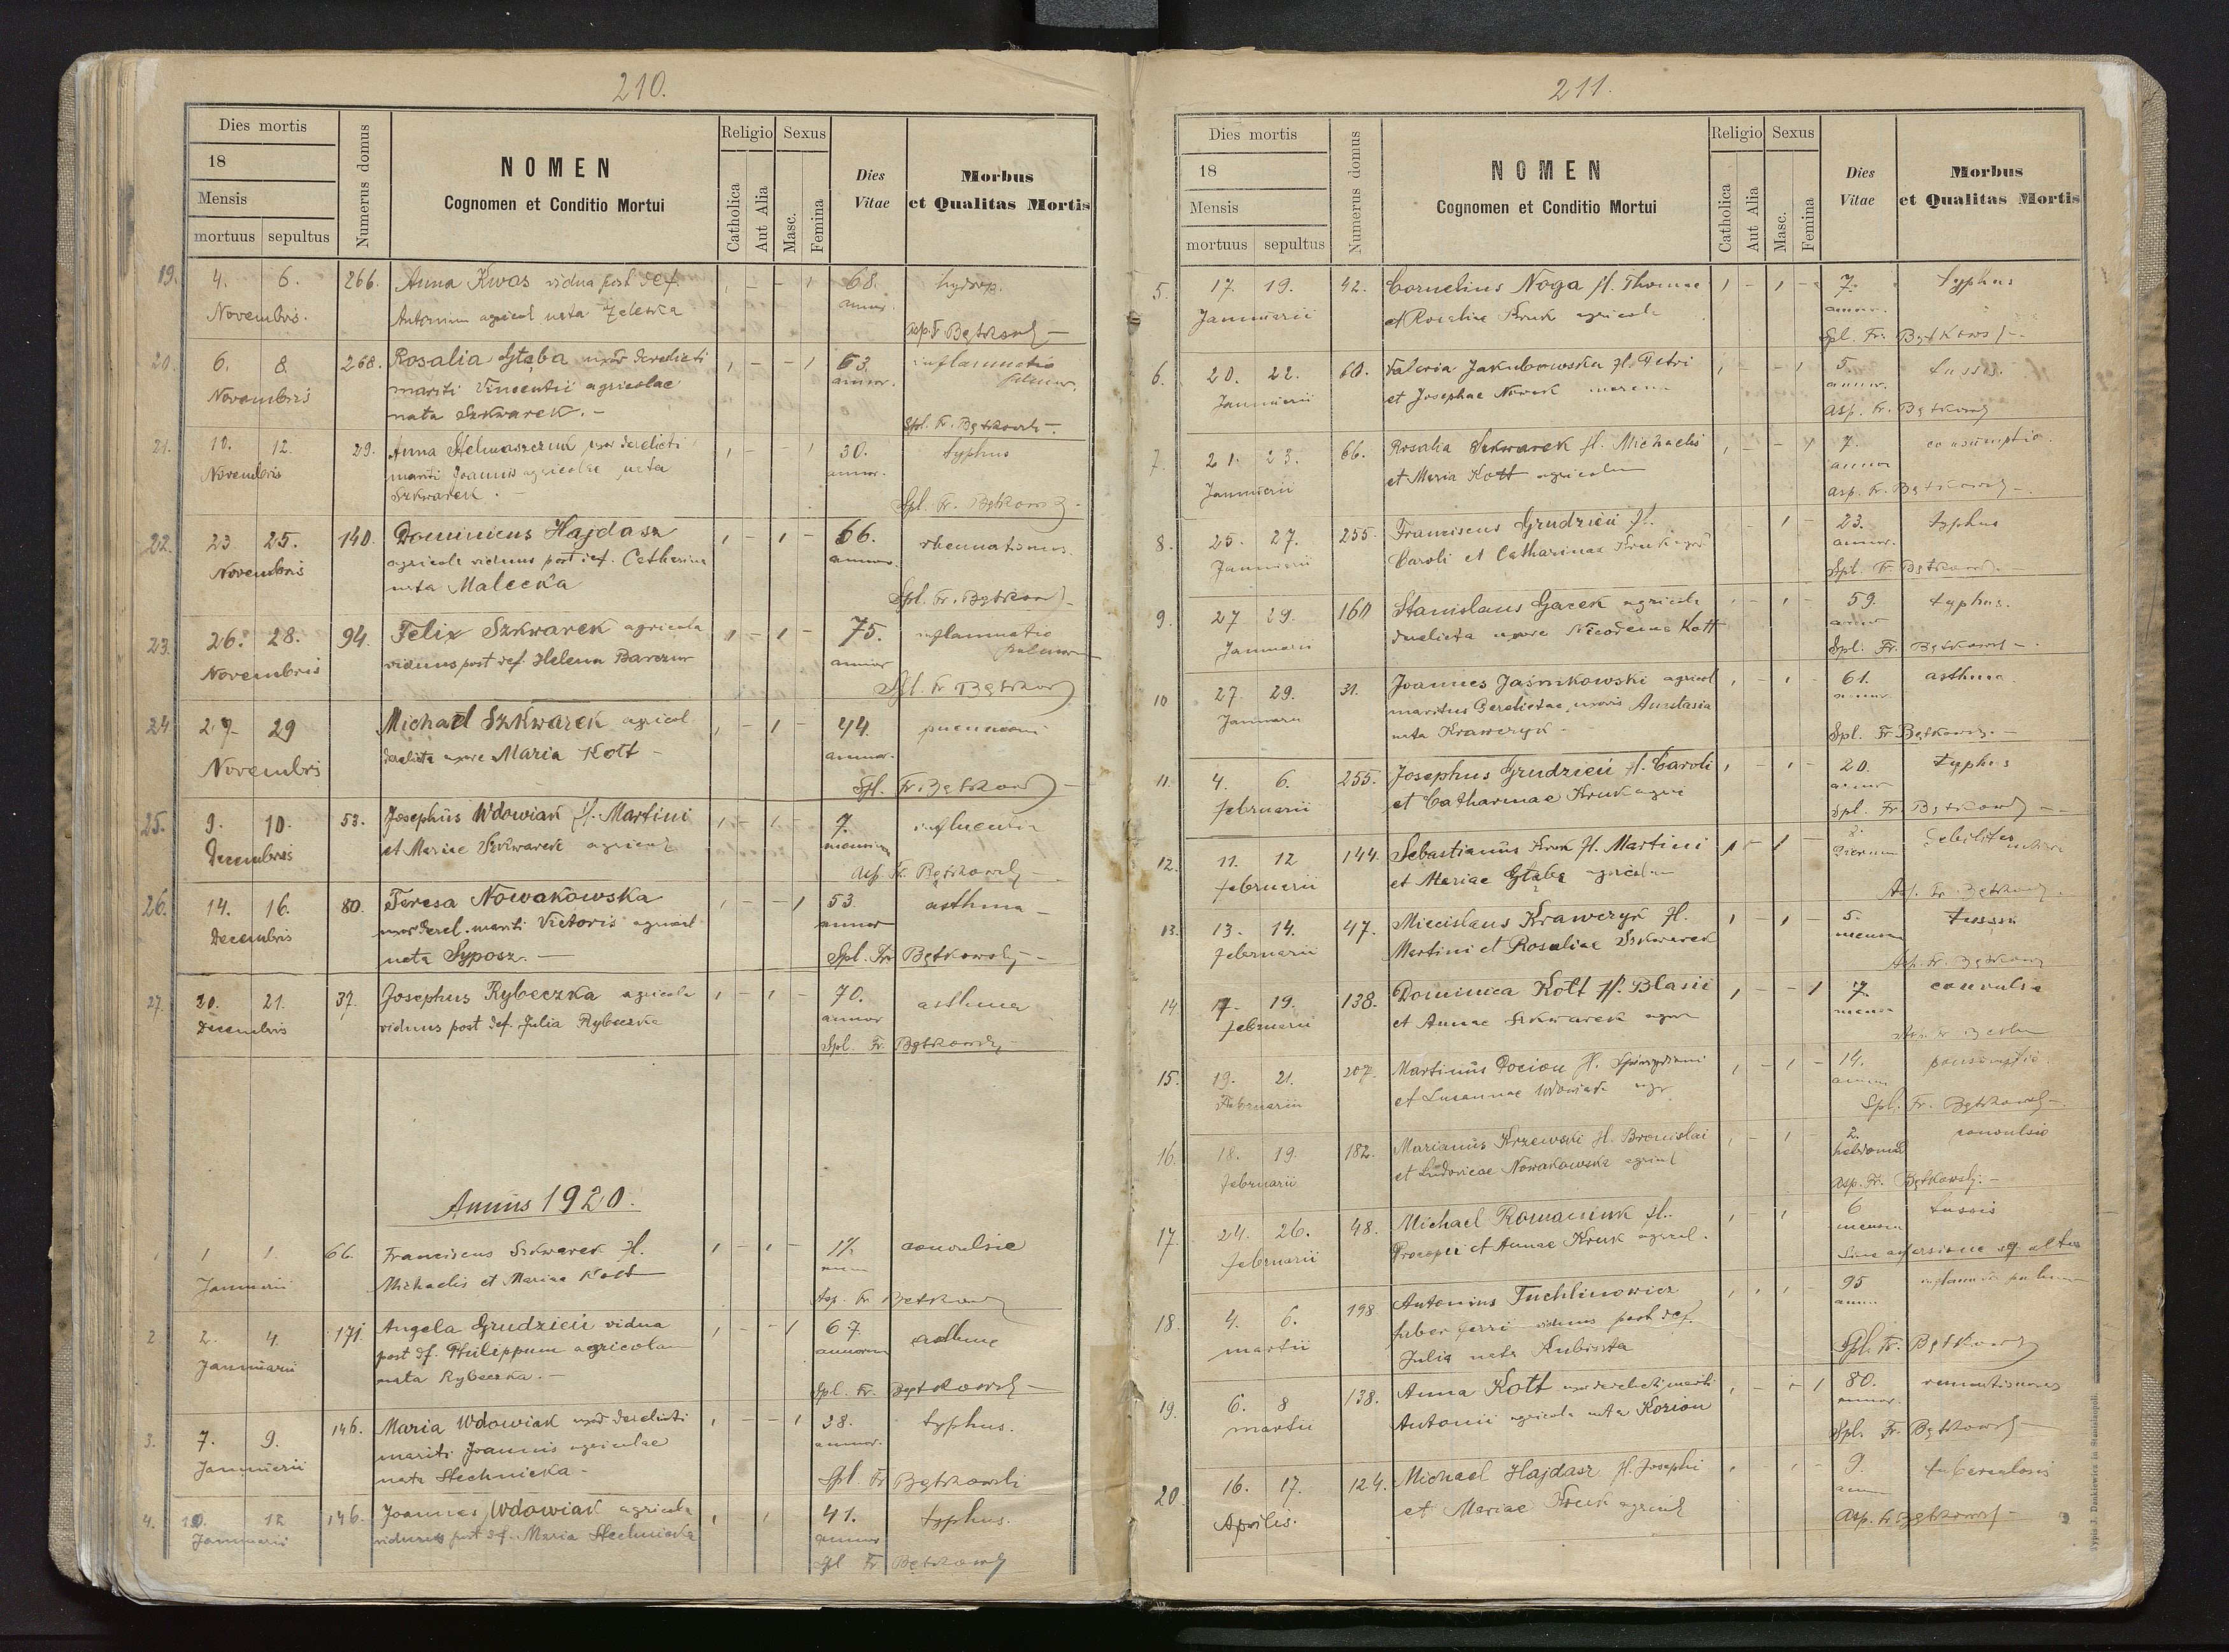 210.
Dies mortis
18
Mensis
mortuus sepultus
Numerus domus
NOMEN
Cognomen et Conditio Mortui
Religio
Catholica
Aut Alia
Sexus
Masc.
Femina
Dies
Vitae
Morbus
et Qualitas Mortis
19. 4. 6. 266. Anna Kwas vidua post def. 1 - - 1 68. hydrop.
Novembris. Antonium agricol nata Zeleska annor.
Asp. F. Bętkowski
20. 6. 8. 268. Rosalia Głąba uxor derelicti 1 - - 1 63. inflammatio
Novembris mariti Vincentii agricolae annor. pulmon.
nata Szkwarek. -
Spl. Fr. Bętkowski -
21. 10. 12. 29. Anna Stelmaszczuk uxor derelicti 1 - 1 30. typhus
Novembris mariti Joannis agricolae nata annor.
Szkwarek. -
Spl. Fr. Bętkowski -
22. 23. 25. 140. Dominicus Hajdasz 1 - 1 - 66. rheumatismus.
Novembris agricola viduus post def. Catherina annor.
nata Malecka
Spl. Fr. Bętkowski -
23. 26. 28. 94. Felix Szkwarek agricola 1 - 1 - 75. inflammatio
Novembris viduus post def. Helena Barczur annor pulmon
Spl. Fr Bętkowski
24. 27. 29 Michael Szkwarek agricol 1 1 - 44. pneumoni
Novembri derelicta uxore Maria Kott - annor.
Spl. Fr. Bętkowski -
25. 9. 10. 53. Josephus Wdowiak fl. Martini 1 - 1 - 7. influentia
Decembris et Mariae Szkwarek agricol mensium
Asp. Fr. Bętkowski -
26. 14. 16. 80. Teresa Nowakowska 1 - - 1 53. asthma -
Decembris uxor derel. mariti Victoris agricol annor
nata Syposz. - Spl. Fr. Bętkowski -
27. 20. 21. 37. Josephus Rybeczka agricola 1 - 1 - 70. asthma
Decembris viduus post def. Julia Rybeczka annor
Spl. Fr. Bętkowski -
Annus 1920.
1 1 1. 66. Franciscus Szkwarek fl. 1 - 1 - convulsie
Januarii Michaelis et Mariae Kott
Asp. Fr Bętkowski
2 2. 4. 171 Angela Grudzień vidua 1 - - 1 67 asthma
Januarii post df. Philippum agricolam annorum
nata Rybeczka. -
Spl. Fr. Bętkowski -
3. 7. 9. 146. Maria Wdowiak uxor derelicti 1 - - 1 38. typhus.
Januarii mariti Joannis agricolae annor.
nata Stechnicka - Spl. Fr Bętkowski
4. 10. 12 146. Joannes Wdowiak agricola 1 1 41. typhus.
Januarii viduus post def. Maria Stechnicka annor
Spl Fr Bętkowski
211.
Dies mortis
18
Mensis
mortuus sepultus
Numerus domus
NOMEN
Cognomen et Conditio Mortui
Religio
Catholica
Aut Alia
Sexus
Masc.
Femina
Dies
Vitae
Morbus
et Qualitas Mortis
5. 17. 19. 42. Cornelius Noga fl. Thomae 1 - 1 - 7. typhus
Januarii et Rosaliae Kruk agricola annor.
Spl. Fr. Bętkowski -
6. 20. 22. 60. Valeria Jakubowska fl. Petri 1 - - 1 5. tussis.
Januarii et Josephae Nowak annor.
Asp. Fr. Bętkowski
7. 21. 23. 66. Rosalia Szkwarek fl. Michaelis 1 - - 1 7. consumptio.
Januarii et Maria Kott agricolum annor
Asp. Fr. Bętkowski -
8. 25. 27. 255. Franciscus Grudzień fl. - 1 - 23. typhus
Januarii Caroli et Catharinae Kruk agri annor.
Spl. Fr Bętkowski -
9. 27 29. 160 Stanislaus Gacek agricola 1 - 1 - 59. typhus.
Januarii derelicta uxore Nicodema Kott annor
Spl. Fr. Bętkowski -
10 27. 29. 31. Joannes Jaśnikowski agricol 1 - 1 61. asthma
Januarii maritus derelictae uxoris Anastasia annor
nata Krawczyk - Spl. Fr Bętkowski -
11. 4. 6. 255. Josephus Grudzień fl. Caroli 1 - 1 - 20. typhus
februarii et Catharinae Kruk agri annor
Spl. Fr Bętkowski -
12. 11. 12 144. Sebastianus Kruk fl. Martini 1 - 1 - 8. debilitas
februarii et Mariae Głąba agricolum dierum
Asp. Fr. Bętkowski.
13. 13. 14. 47. Miecislaus Krawczyk fl. 1 - 1 - 5. tussis
februarii Martini et Rosaliae Szkwarek mensium
Asp. Fr. Bętkowski
14 17. 19. 138. Dominica Kott fl. Blasii 1 - - 1 7. convulsia
februarii et Annae Szkwarek agric mensium
15. 19. 21. 207. Martinus Pocion fl. 1 - 1 - 14. consumptio
Februarii et Susannae Wdowiak agr annor
Spl. Fr. Bętkowski -
16. 18. 19. 182. Marianus Krzewski fl. Bronislai 1 - 1 - 2. convulsio
februarii et Ludovicae Nowakowska agricol hebdomad
Asp. Fr. Bętkowski. -
17. 24. 26. 48. Michael Romaniuk fl. 1 - 1 - 6 tussis
februarii Procopii et Annae Kruk agricol. mensium
Sine aspersione
18. 4. 6. 198 Antonius Tuchlinowicz 1 1 1 - 95 inflamatio pulmon
martii faber ferri viduus post def. annor
Julia nata Kubista Spl. Fr. Bętkowski
19. 6. 8 138. Anna Kott uxor derelicti mariti 1 - - 1 80. reumatismus
martii Antonii agricola nata Kozion annor.
Spl. Fr. Bętkowski -
20 16. 17. 124. Michael Hajdasz fl. Josephi 1 - 1 - 9. tuberculosis
Aprilis. et Mariae Kruk agricol ann
Asp. Fr Bętkowski -
Typis J. Dankiewicz in Stanislaopoli.